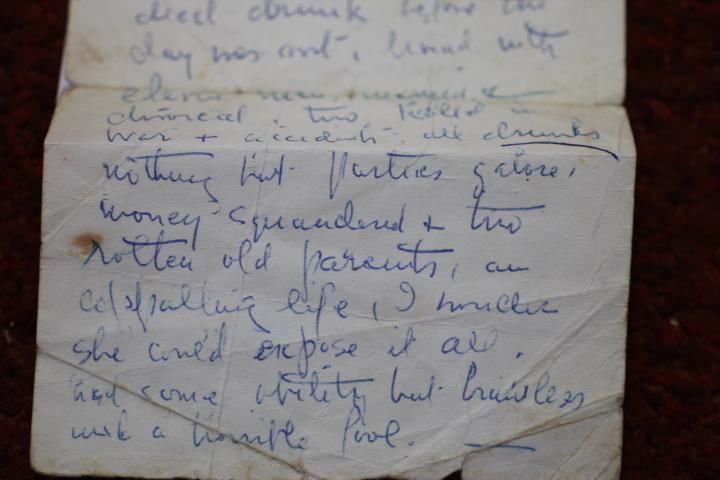 died drunk before the
day was out, lived with
eleven men, married &
divorced, two killed in
war & accidents. all drunks
nothing but parties galore,
money squandered & two
rotten old parents, an
appalling life, I wonder
she could expose it all.
had some ability but brainless
and a horrible fool.